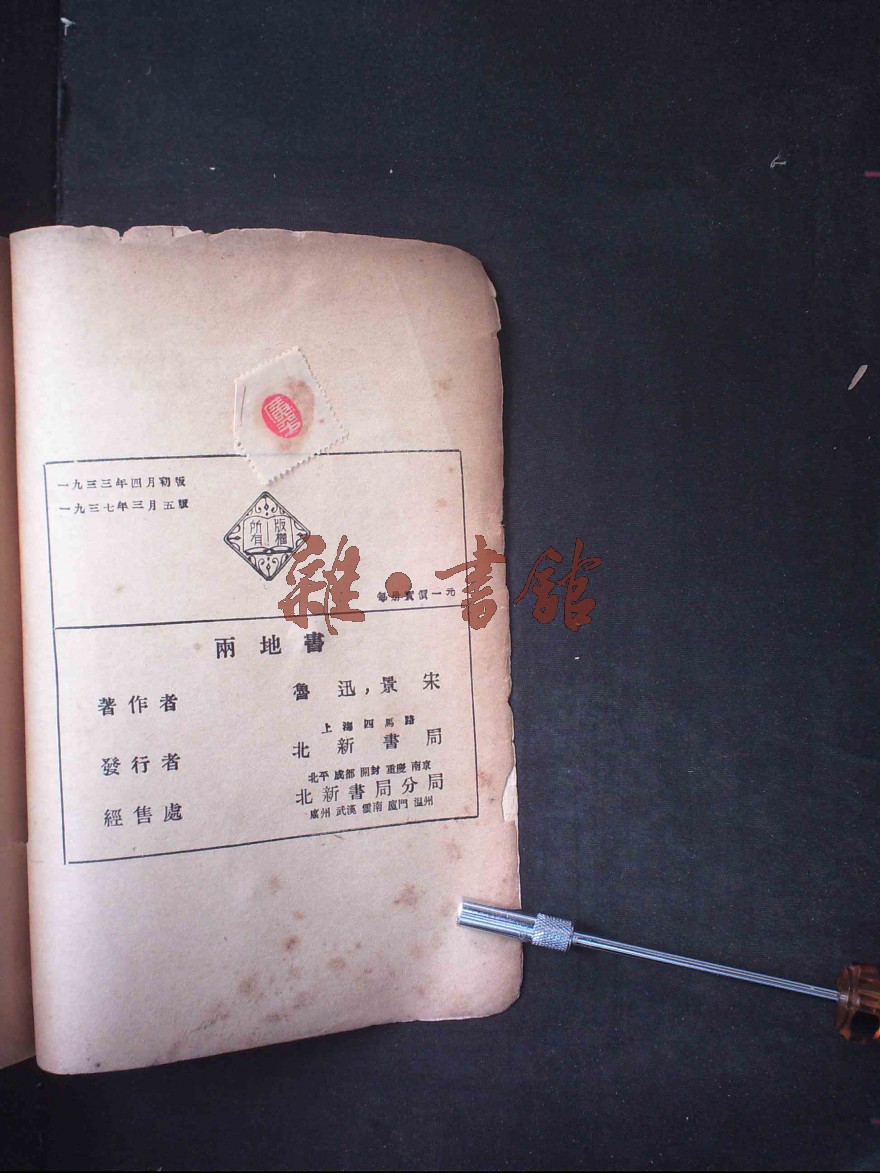 一九三三年四月初版
一九三七年三月五號
版權
所有
雜·書館
每册實價一元
兩地書
著作者
魯迅,景宋
發行者
上海四馬路
北新書局
經售處
北平 成都 開封 重慶 南京
北新書局分局
廣州 武漢 雲南 廈門 溫州